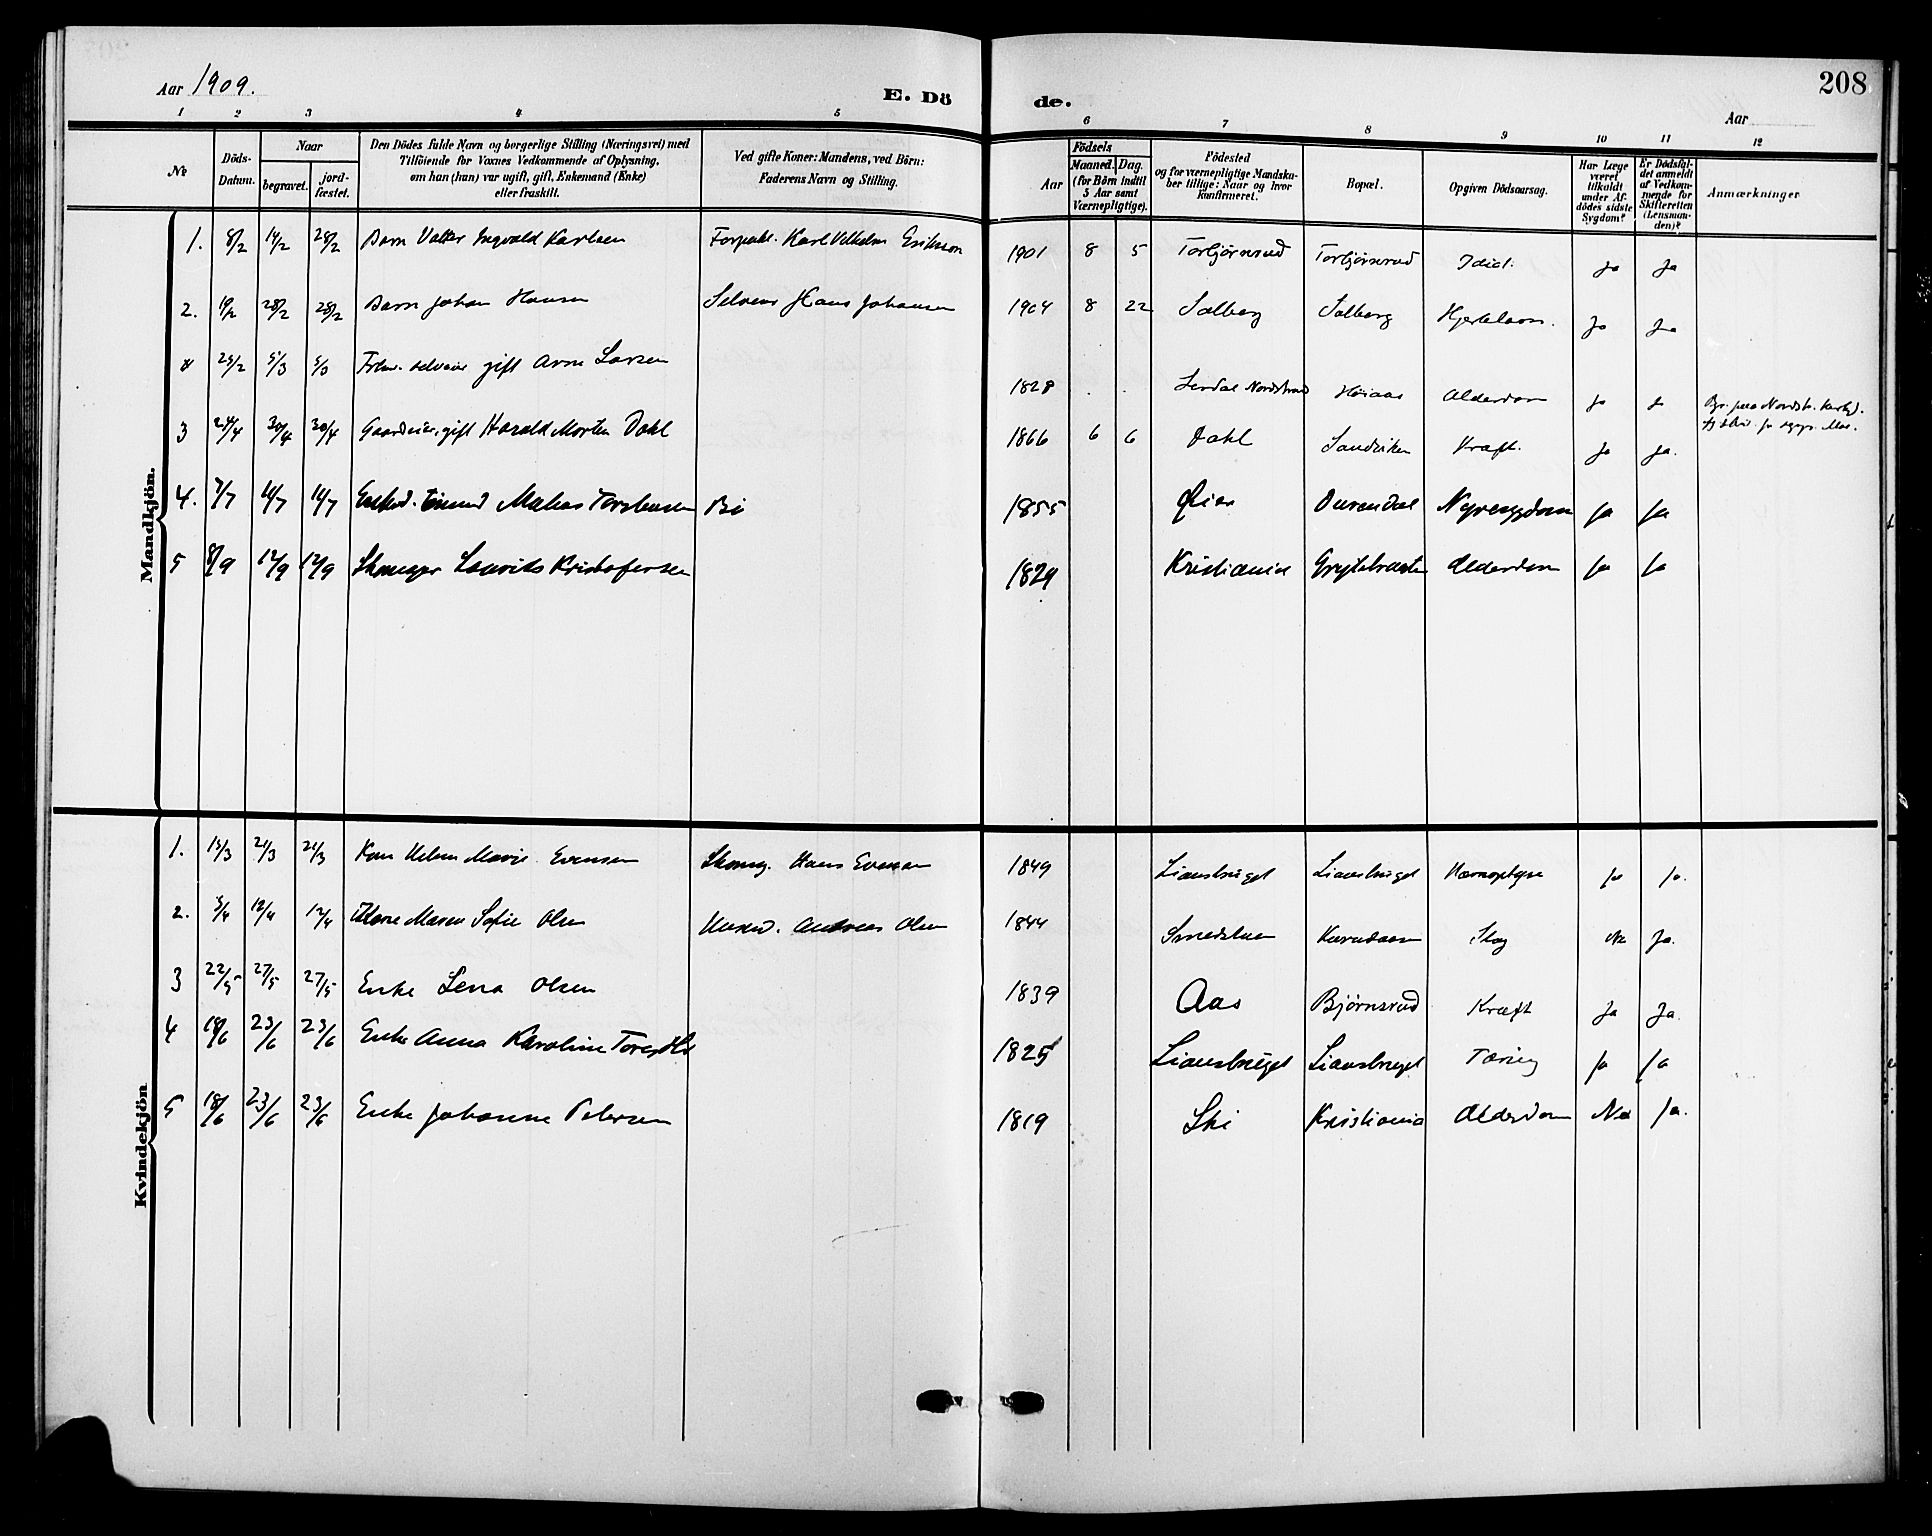 208
Aar 1909.
E. Dö de.
Aar
1 2 3 4 5 6 7 8 9 10 11 12
No
Döds-Datum.
Naar
begravet.
jord-fæstet.
Den Dödes fulde Navn og borgerlige Stilling (Næringsvei) med
Tilföiende for Voxnes Vedkommende af Oplysning,
om han (hun) var ugift, gift, Enkemand (Enke)
eller fraskilt.
Ved gifte Koner: Mandens, ved Börn:
Faderens Navn og Stilling.
Födsels
Aar
Maaned. Dag.
(for Börn indtil
5 Aar samt
Værnepligtige).
Födested
og for værnepligtige Mandska-
ber tillige: Naar og hvor
konfirmeret.
Bopæl.
Opgiven Dödsaarsag.
Har Læge
været
tilkaldt
under Af-
dödes sidste
Sygdom?
Er Dödsfal-
det anmeldt
af Vedkom-
mende for
Skifteretten
(Lensman-
den)?
Anmærkninger
Mandkjön.
1. 8/2 14/2 28/2 Barn Valter Ingvald Karlsen Forpakt. Karl Vilhelm Eriksson 1901 8 5 Torbjørnsrud Torbjørnsrud Idiot. Ja Ja
2. 19/2 28/2 28/2 Barn Johan Hansen Selveier Hans Johansen 1904 8 22 Solberg Solberg Ja Ja
25/2 5/3 5/3 selveier gift Arne Larsen 1828 . . Nordstrand Høiaas Alderdom Ja Ja
3 24/4 30/4 30/4 Gaardeier, gift Harald Morten Dahl 1866 6 6 Dahl Sandviken Kræft. Ja Ja.
4. 7/7 14/7 14/7 Bø 1855 Øier Nyresygdom Ja Ja
5 8/9 12/9 12/9 Skomager Lauritz Kristofersen 1829 Kristiania Alderdom Ja Ja
Kvindekjön
1. 15/3 21/3 21/3 Kone Marie Evensen Skomag. Hans Evensen 1849 1849 Liansbruget Liansbruget Ja Ja.
2. 5/4 12/4 12/4 Kone Maren Sofie Olsen Andreas Olsen 1844 Smedstuen Slag Nei Ja.
3 22/5 27/5 27/5 Enke Lena Olsen 1839 Aas Bjørnsrud Kræft Ja Ja.
4 18/6 23/6 23/6 Enke Anna Karoline 1825 Liansbruget Liansbruget Tæring Ja Ja
5 18/6 23/6 23/6 Enke Johanne Petersen 1819 Ski Kristiania Alderdom Nei Ja.